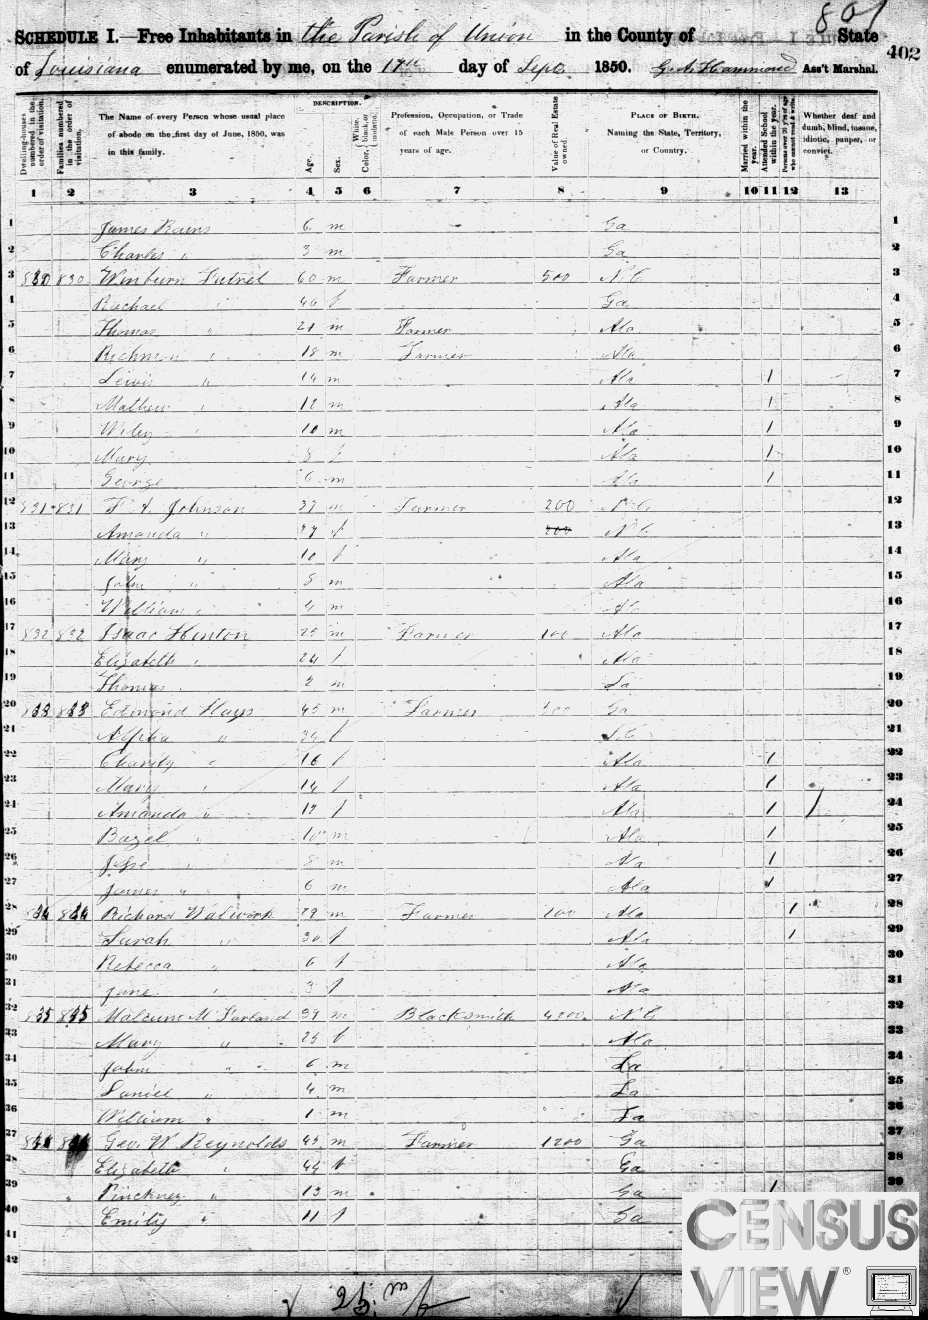 801
SCHEDULE I.—Free Inhabitants in the Parish of Union in the County of State
of Louisiana enumerated by me, on the 17th day of Sept 1850. G. A. Hammond Ass't Marshal.
402
DESCRIPTION.
Dwelling-houses numbered in the order of visitation.
Families numbered in the order of visitation.
The Name of every Person whose usual place of abode on the first day of June, 1850, was in this family.
Age.
Sex.
Color, White, black, or mulatto.
Profession, Occupation, or Trade of each Male Person over 15 years of age.
Value of Real Estate owned.
PLACE OF BIRTH, Naming the State, Territory, or Country.
Married within the year.
Attended School within the year.
Persons over 20 y'rs of age who cannot read & write.
Whether deaf and dumb, blind, insane, idiotic, pauper, or convict.
1 2 3 4 5 6 7 8 9 10 11 12 13
1 James Rains 6 m Ga 1
2 Charles " 3 m Ga 2
3 830 830 Winburn Futrel 60 m Farmer 500 N C 3
4 Rachael " 40 f Ga 4
5 Thomas " 21 m Farmer Ala 5
6 Richmon " 18 m Farmer Ala 6
7 Lewis " 14 m Ala 1 7
8 Mathew " 12 m Ala 1 8
9 Wiley " 10 m Ala 1 9
10 Mary 8 f Ala 1 10
11 George 6 m Ala 1 11
12 831 831 Johnson 37 m Farmer 200 N C 12
13 Amanda " f 200 N C 13
14 Mary " 10 f Ala 14
15 John " 8 m Ala 15
16 William " 4 m Ala 16
17 832 832 Isaac Hinton 25 m Farmer 100 Ala 17
18 Elizabeth " 24 f Ala 18
19 Thomas 2 m La 19
20 833 833 Edmond Hays 45 m Farmer 200 Ga 20
21 Alpha " f 21
22 Charity " 16 f Ala 1 22
23 Mary " 14 f Ala 1 23
24 Amanda " 12 f Ala 1 / 24
25 Bazel " 10 m Ala 1 25
26 Jesse " 8 m Ala 1 26
27 James " 6 m Ala 1 27
28 834 834 Richard Walwork 29 m Farmer 100 Ala 1 28
29 Sarah " 30 f Ala 1 29
30 Rebecca " 6 f Ala 30
31 Jane " 3 f Ala 31
32 835 835 Malcum McFarland 39 m Blacksmith 4200 N C 32
33 Mary " 25 f Ala 33
34 John " " 6 m La 34
35 Daniel " 4 m La 35
36 William " 1 m La 36
37 Geo. W Reynolds 45 m Farmer 1200 Ga 37
38 Elizabeth " 44 f Ga 38
39 Pinckney " 13 m Ga 1 39
40 Emily " 11 f Ga
41
42
25 m
CENSUS
VIEW ®